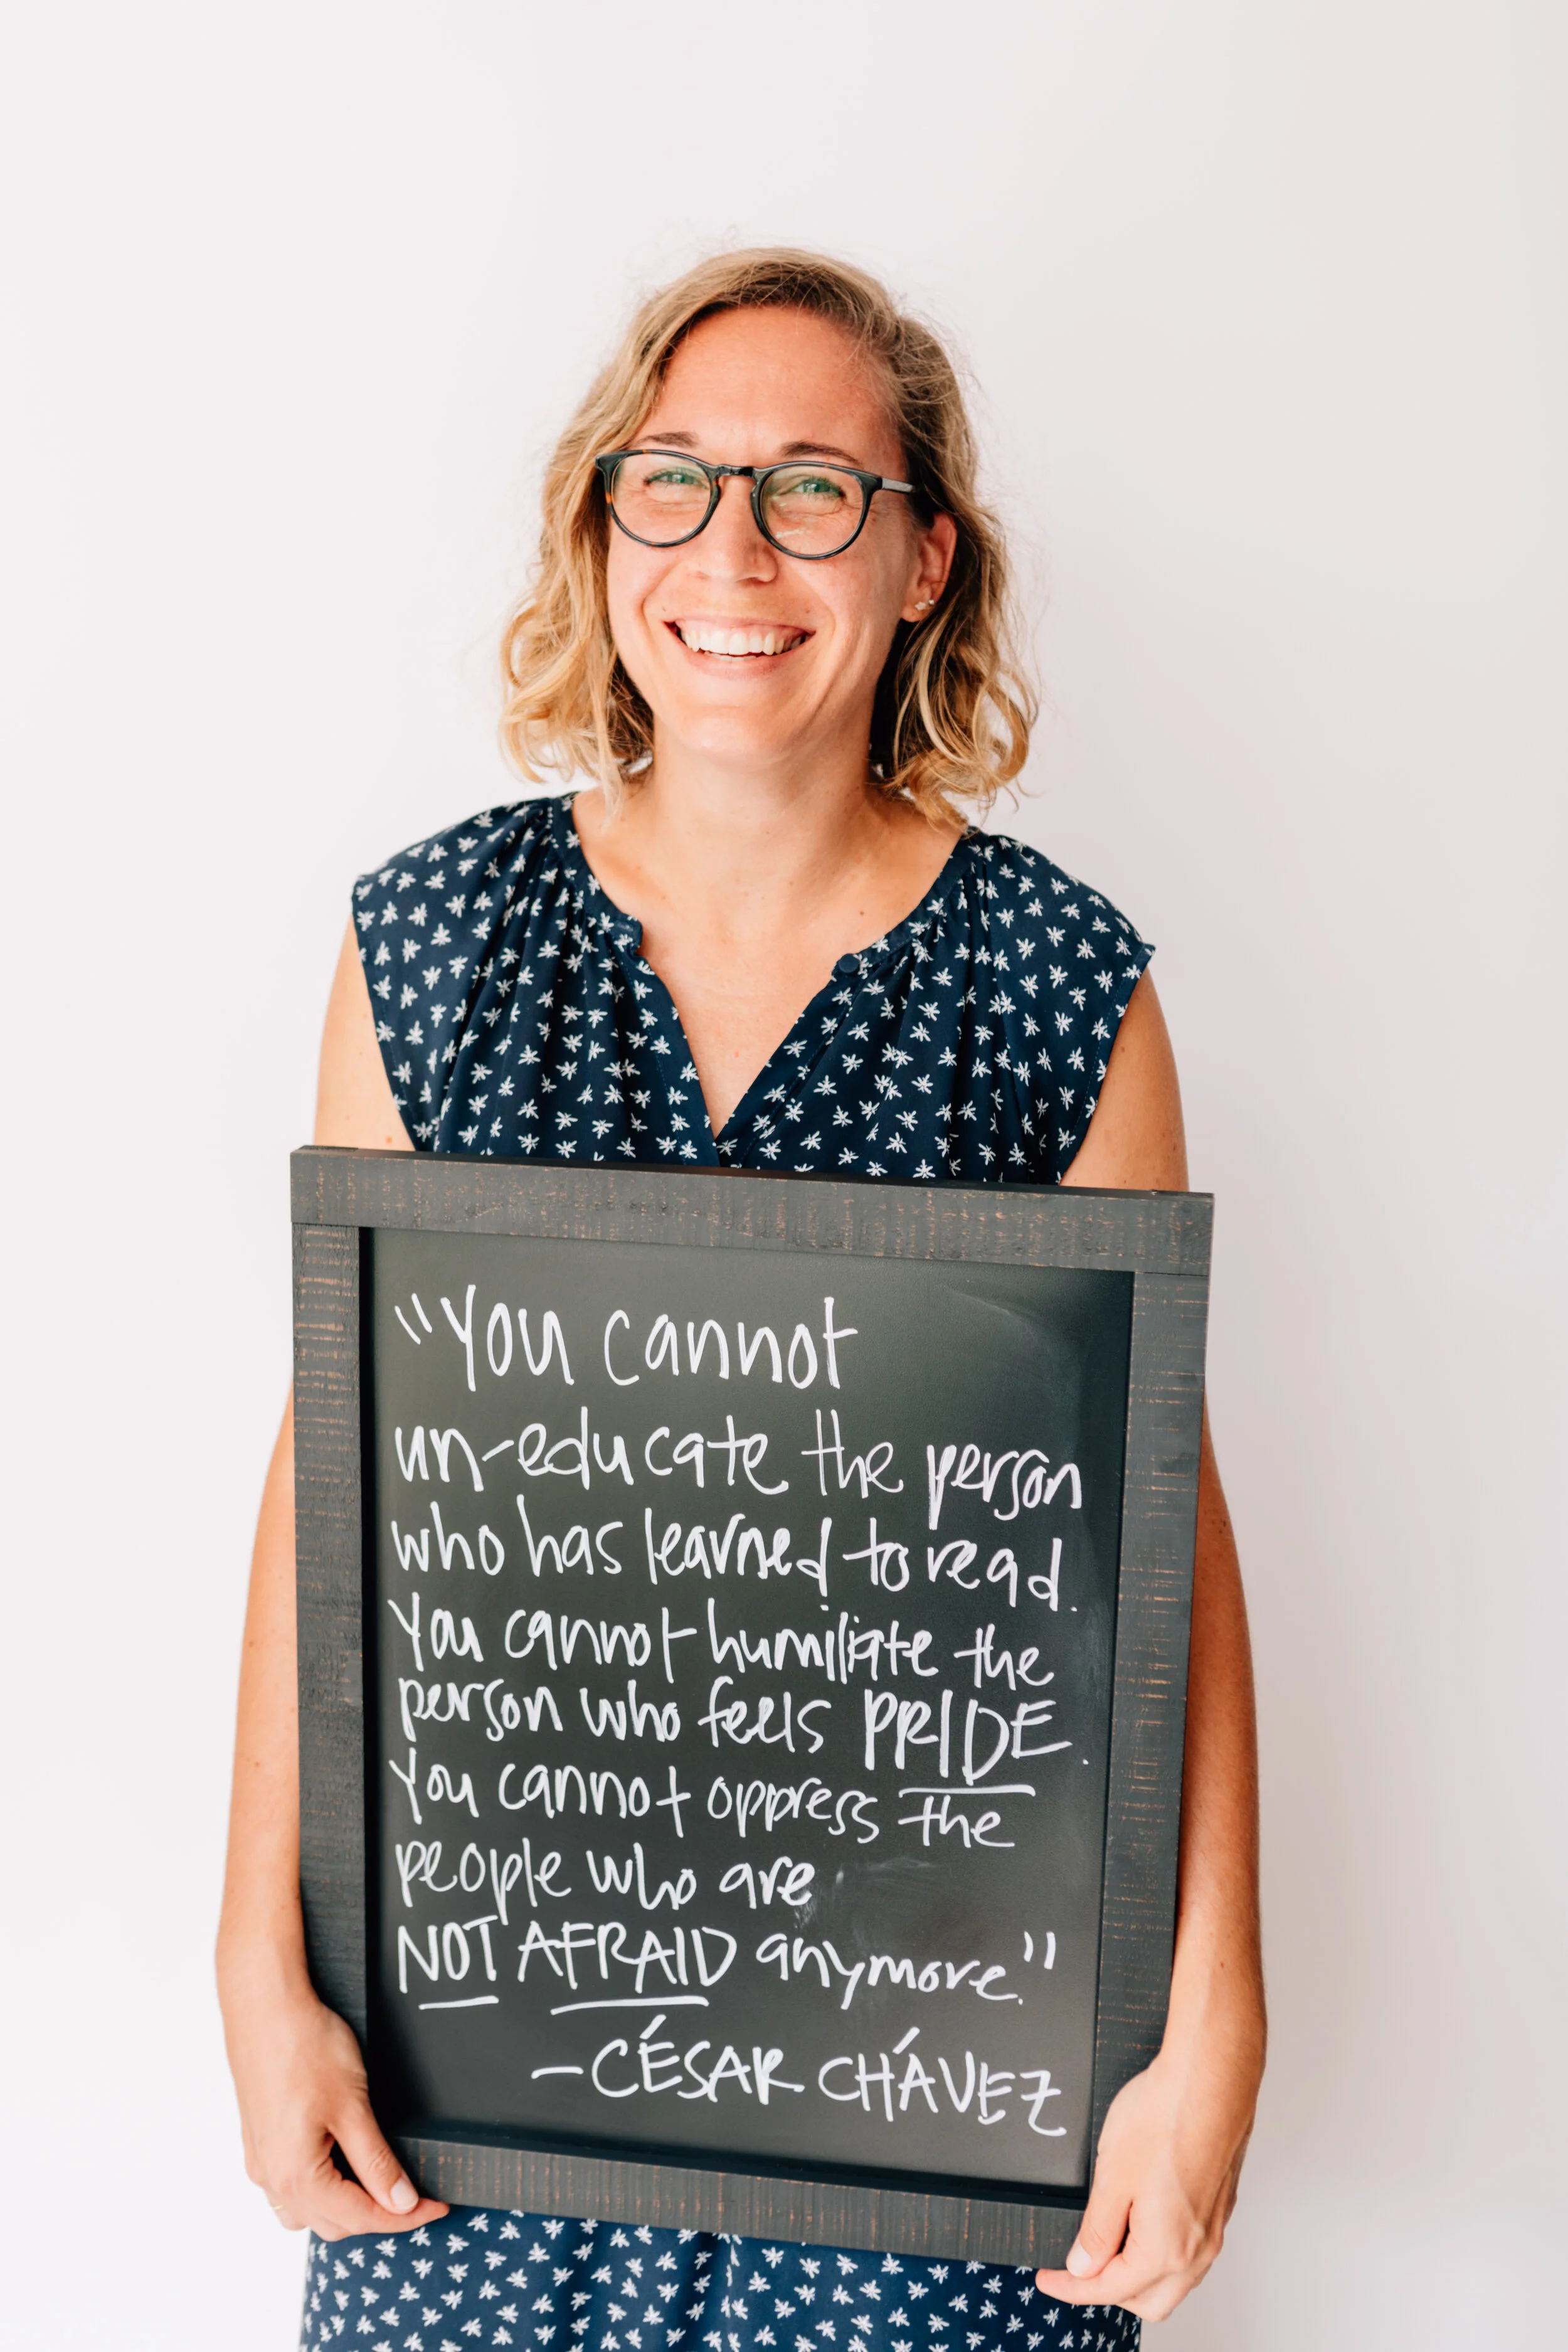 "You cannot
un-educate the person
who has learned to read.
You cannot humiliate the
person who feels PRIDE.
You cannot oppress the
people who are
NOT AFRAID anymore."
-CÉSAR CHÁVEZ